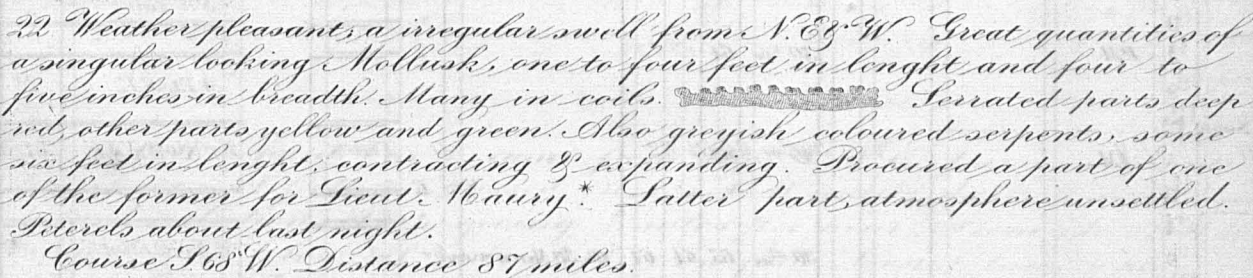 22 Weather pleasant, a irregular swell from N. E & W. Great quantities of
a singular looking Mollusk, one to four feet in lenght and four to
five inches in breadth. Many in coils. Serrated parts deep
red, other parts yellow and green. Also greyish coloured serpents, some
six feet in lenght, contracting & expanding. Procured a part of one
of the former for Lieut. Maury.* Latter part, atmosphere unsettled.
Peterels about last night.
Course S. 68° W. Distance 87 miles.